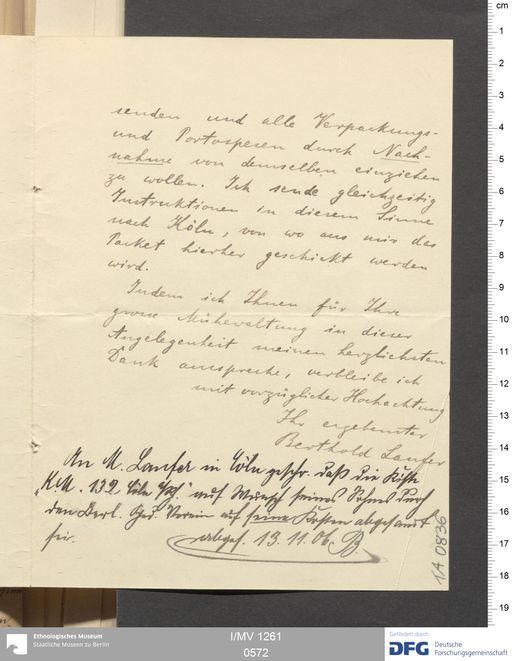 senden und alle Verpackungs-
und Portospesen durch Nach-
nahme von demselben einziehen
zu wollen. Ich sende gleichzeitig
Instruktionen in diesem Sinne
nach Köln, von wo aus mir das
Packet hierher geschickt werden
wird.
Indem ich Ihnen für Ihre
grosse Mühewaltung in dieser
Angelegenheit meinen herzlichsten
Dank ausspreche, verbleibe ich
mit vorzüglicher Hochachtung
Ihr ergebenster
Berthold Laufer
An M. Laufer in Cöln geschr. daß die Kiste
"K.M. 132 Cöln" auf Wunsch seines Sohnes durch
den Berl. Verein auf seine Kosten abgesandt
sei.
abges. 13.11.06. B
1A 0836
cm
1
2
3
4
5
6
7
8
9
10
11
12
13
14
15
16
17
18
19
Ethnologisches Museum
Staatliche Museen zu Berlin
I/MV 1261
0572
Gefördert durch
DFG Deutsche
Forschungsgemeinschaft